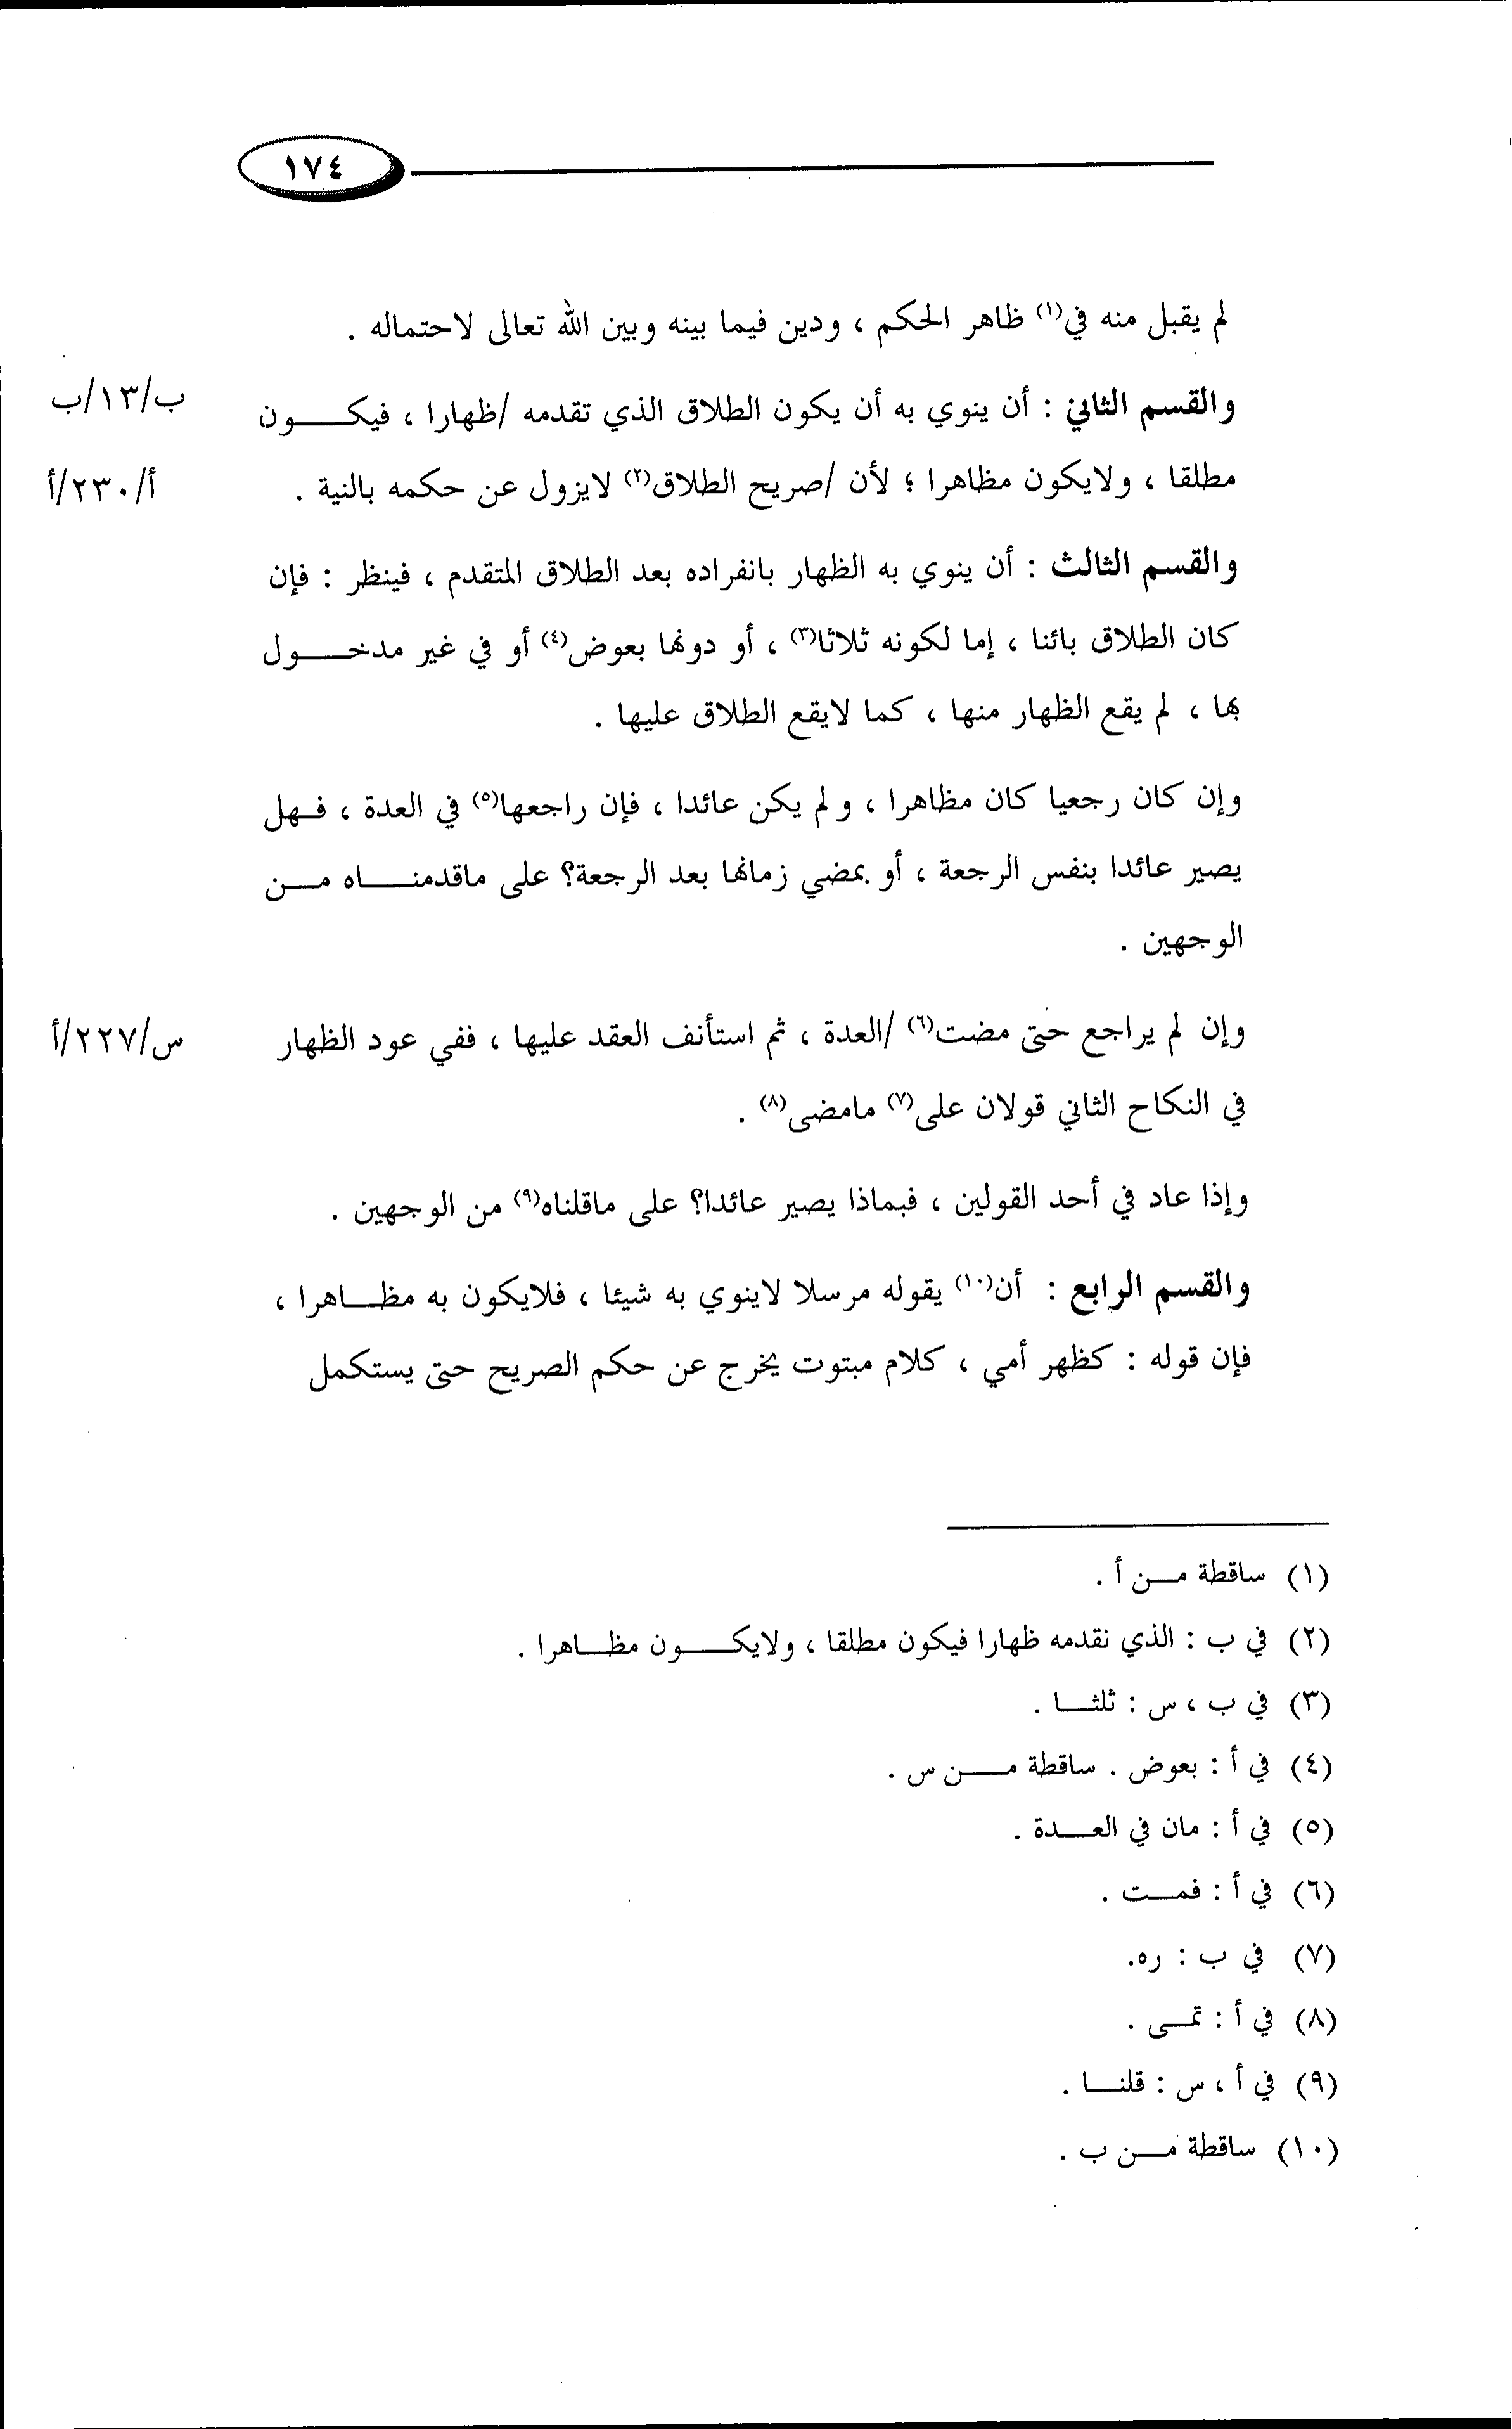 ١٧٤
لم يقبل منه في(١) ظاهر الحكم ، ودين فيما بينه وبين الله تعالى لاحتماله .
والقسم الثاني : أن ينوي به أن يكون الطلاق الذي تقدمه /ظهارا ، فيكـــون ب/١٣/ب
مطلقا ، ولايكون مظاهرا ؛ لأن /صريح الطلاق(٢) لايزول عن حكمه بالنية . أ/٢٣٠/أ
والقسم الثالث : أن ينوي به الظهار بانفراده بعد الطلاق المتقدم ، فينظر : فإن
كان الطلاق بائنا ، إما لكونه ثلاثا(٣) ، أو دونها بعوض(٤) أو في غير مدخـــول
بها ، لم يقع الظهار منها ، كما لايقع الطلاق عليها .
وإن كان رجعيا كان مظاهرا ، ولم يكن عائدا ، فإن راجعها(٥) في العدة ، فـهل
يصير عائدا بنفس الرجعة ، أو بمضي زمانها بعد الرجعة؟ على ماقدمنـــاه مـــن
الوجهين .
وإن لم يراجع حتى مضت(٦) /العدة ، ثم استأنف العقد عليها ، ففي عود الظهار س/٢٢٧/أ
في النكاح الثاني قولان على(٧) مامضى(٨) .
وإذا عاد في أحد القولين ، فبماذا يصير عائدا؟ على ماقلناه(٩) من الوجهين .
والقسم الرابع : أن(١٠) يقوله مرسلا لاينوي به شيئا ، فلايكون به مظـــاهرا ،
فإن قوله : كظهر أمي ، كلام مبتوت يخرج عن حكم الصريح حتى يستكمل
(١) ساقطة مـــن أ .
(٢) في ب : الذي نقدمه ظهارا فيكون مطلقا ، ولايكـــون مظـــاهرا .
(٣) في ب ، س : ثلثـــا .
(٤) في أ : بعوض . ساقطة مـــن س .
(٥) في أ : مان في العـــدة .
(٦) في أ : فمـــت .
(٧) في ب : ره.
(٨) في أ : تمـــى .
(٩) في أ ، س : قلنـــا .
(١٠) ساقطة مـــن ب .